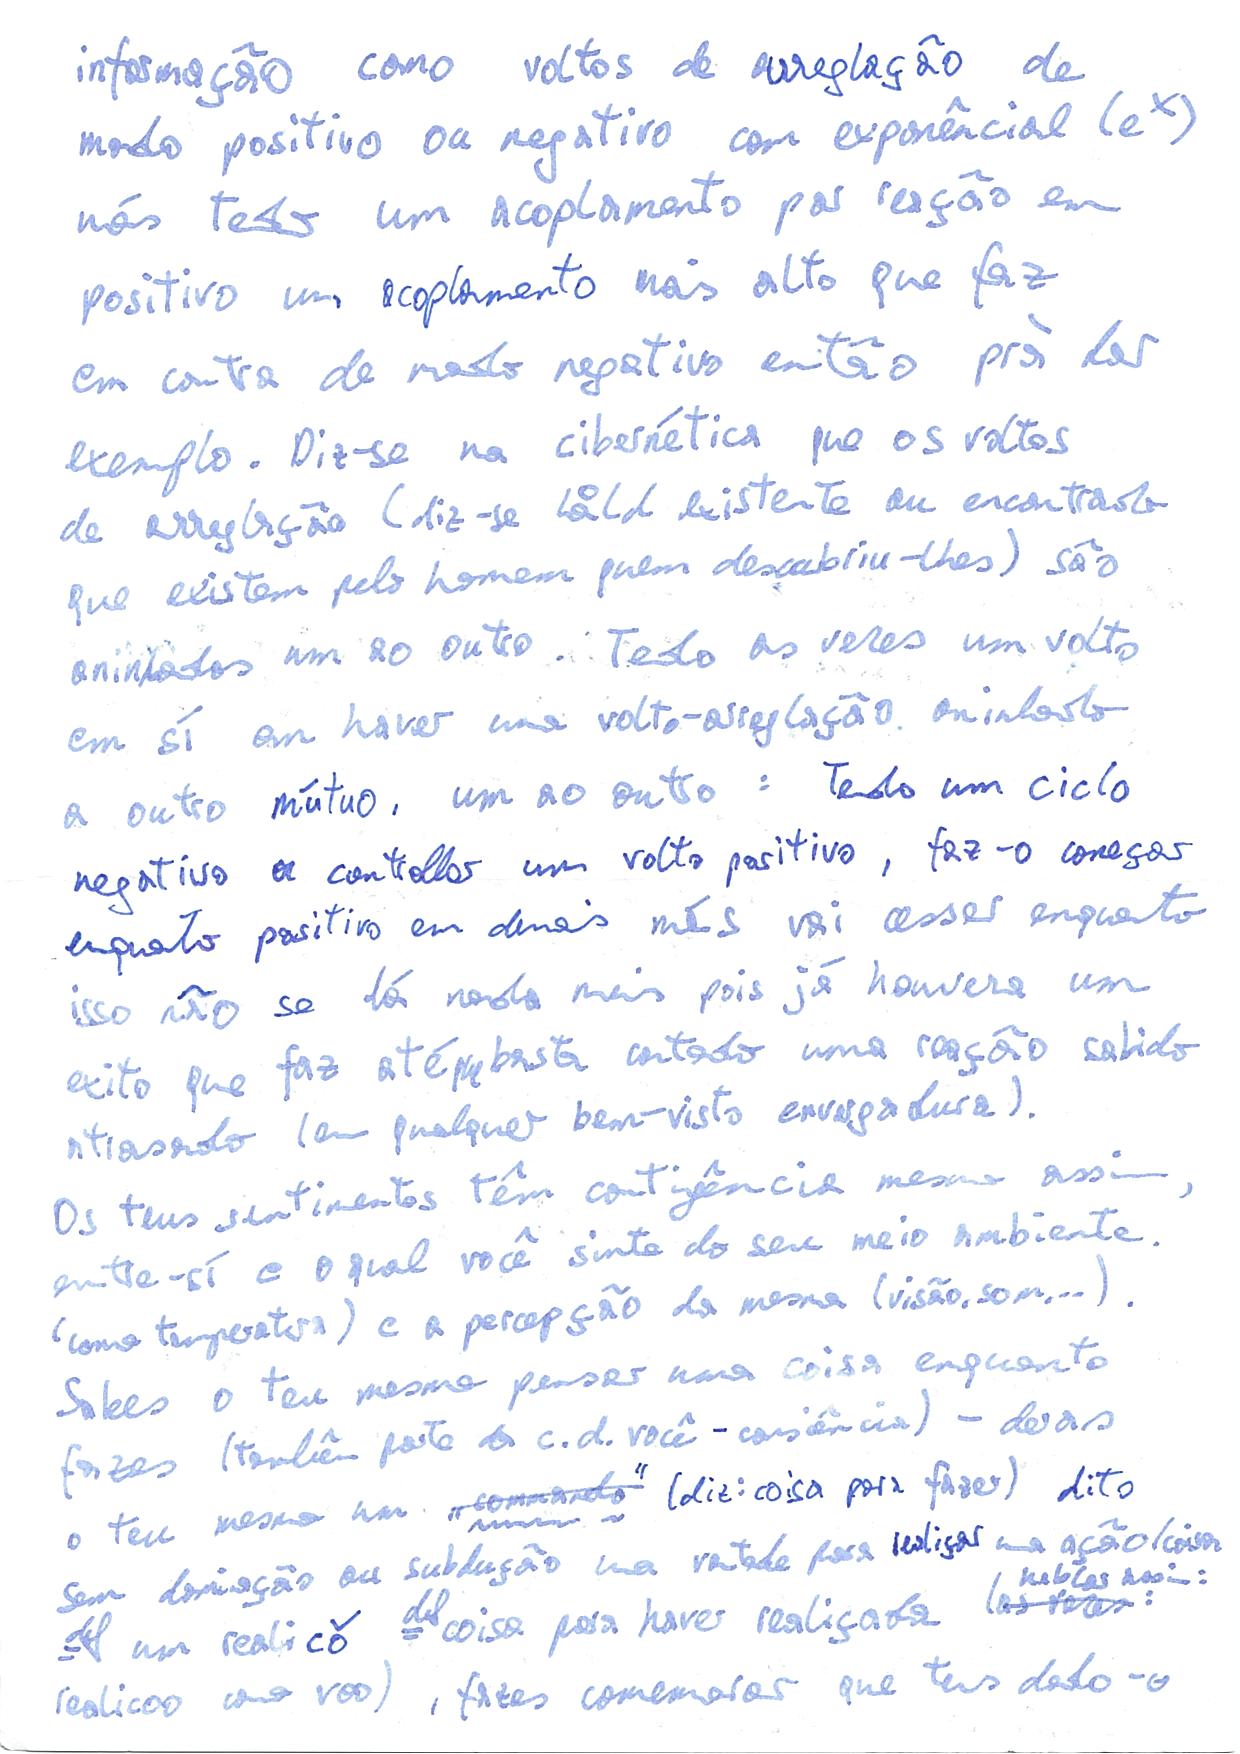 informação como voltos de arreglação de
modo positivo ou negativo com exponêncial (e^x)
nós tedo um acoplamento por reação em
positivo um acoplamento mais alto que faz
em contra de modo negativo então prà dar
exemplo. Diz-se na cibernética que os voltos
de arreglação (diz-se existente ou encontrado
que existem pelo homem quem descubriu-lhes) são
aninhados um ao outro. Tedo as vezes um volto
em sí ou haver uma volto-arreglação aninhado
a outro mútuo, um ao outro : Tedo um ciclo
negativo a controllar um volto positivo, faz-o começar
enquato positivo em demais més vai cesser enquanto
isso não se dá nada mais pois já houvera um
exito que faz até basta contado uma reação sabido
atrasado (em qualquer bem-visto envergadura).
Os teus sentimentos têm contigência mesmo assim,
entre-sí e o qual você sinte do seu meio ambiente.
(como temperatura) e a percepção da mesma (visão, som, ...).
Sabes o teu mesmo pensar uma coisa enquanto
fazes (também parte da c.d. você-consiência) – devas
o teu mesmo um „commando“ (diz: coisa para fazer) dito
sem dominação ou subdução uma vontade para realiçar uma ação/coisa
=def um realicŏ =def coisa para haver realiçada (as vezes: hablas assim:
realicoo como voo), fazes comemorar que tens dado-o